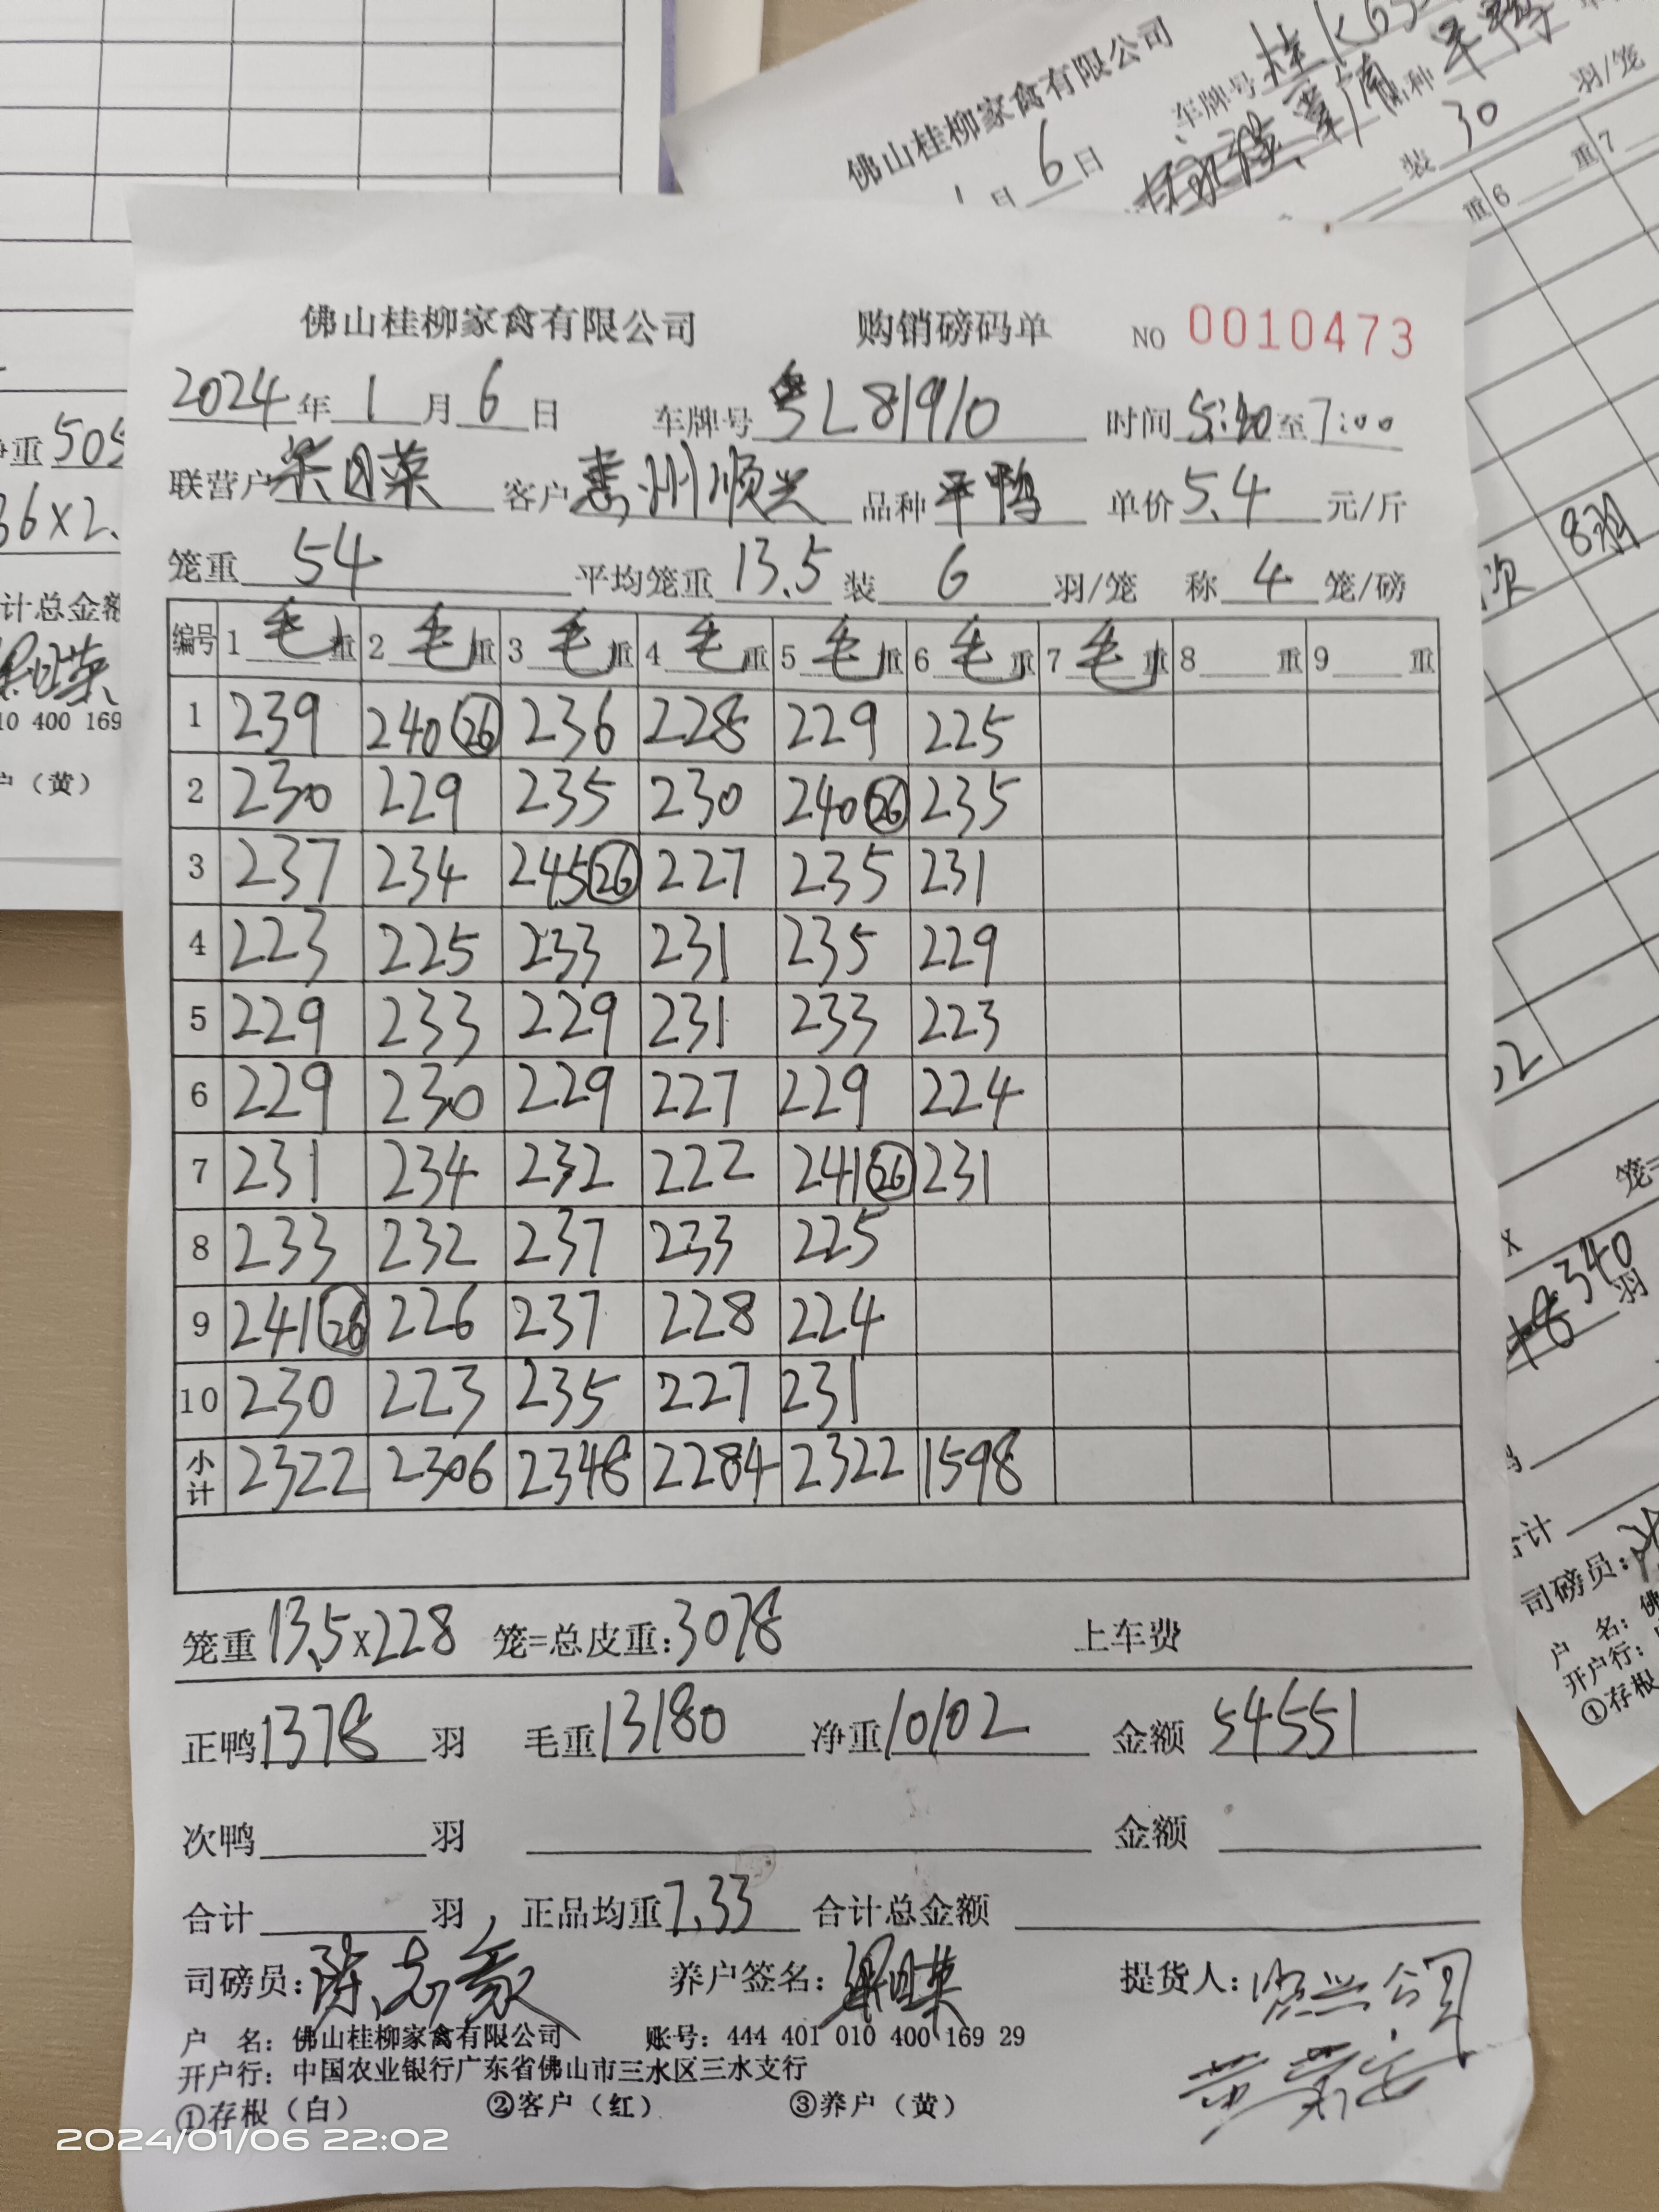 佛山桂柳家禽有限公司 购销磅码单 NO 0010473
2024年1月6日 车牌号粤L81910 时间5:20至7:00
联营户梁日荣 客户惠州顺兴 品种平鸭 单价5.4元/斤
笼重54 平均笼重13.5装6羽/笼 称4笼/磅
编号 1毛重 2毛重 3毛重 4毛重 5毛重 6毛重 7毛重 8重 9重
1 239 240(26) 236 228 229 225
2 230 229 235 230 240(26) 235
3 237 234 245(26) 227 235 231
4 223 225 233 231 235 229
5 229 233 229 231 233 223
6 229 230 229 227 229 224
7 231 234 232 222 241(26) 231
8 233 232 237 233 225
9 241(26) 226 237 228 224
10 230 223 235 227 231
小计 2322 2306 2348 2284 2322 1598
笼重13.5x228 笼=总皮重:3078 上车费
正鸭1378羽 毛重13180 净重10102 金额54551
次鸭 羽 金额
合计 羽, 正品均重7.33 合计总金额
司磅员:陈志豪 养户签名:梁日荣 提货人:顺兴公司
户 名:佛山桂柳家禽有限公司 账号:444 401 010 400 169 29
开户行:中国农业银行广东省佛山市三水区三水支行
①存根(白) ②客户(红) ③养户(黄)
2024/01/06 22:02
佛山桂柳家禽有限公司
1月6日 车牌号桂K63
品种 平鸭
装30羽/笼
重6 重7
8羽
净重505
36×2.
计总金额
10 400 169
户(黄)
笼=
x
340
羽
合计
司磅员:
户 名:佛
开户行:
①存根